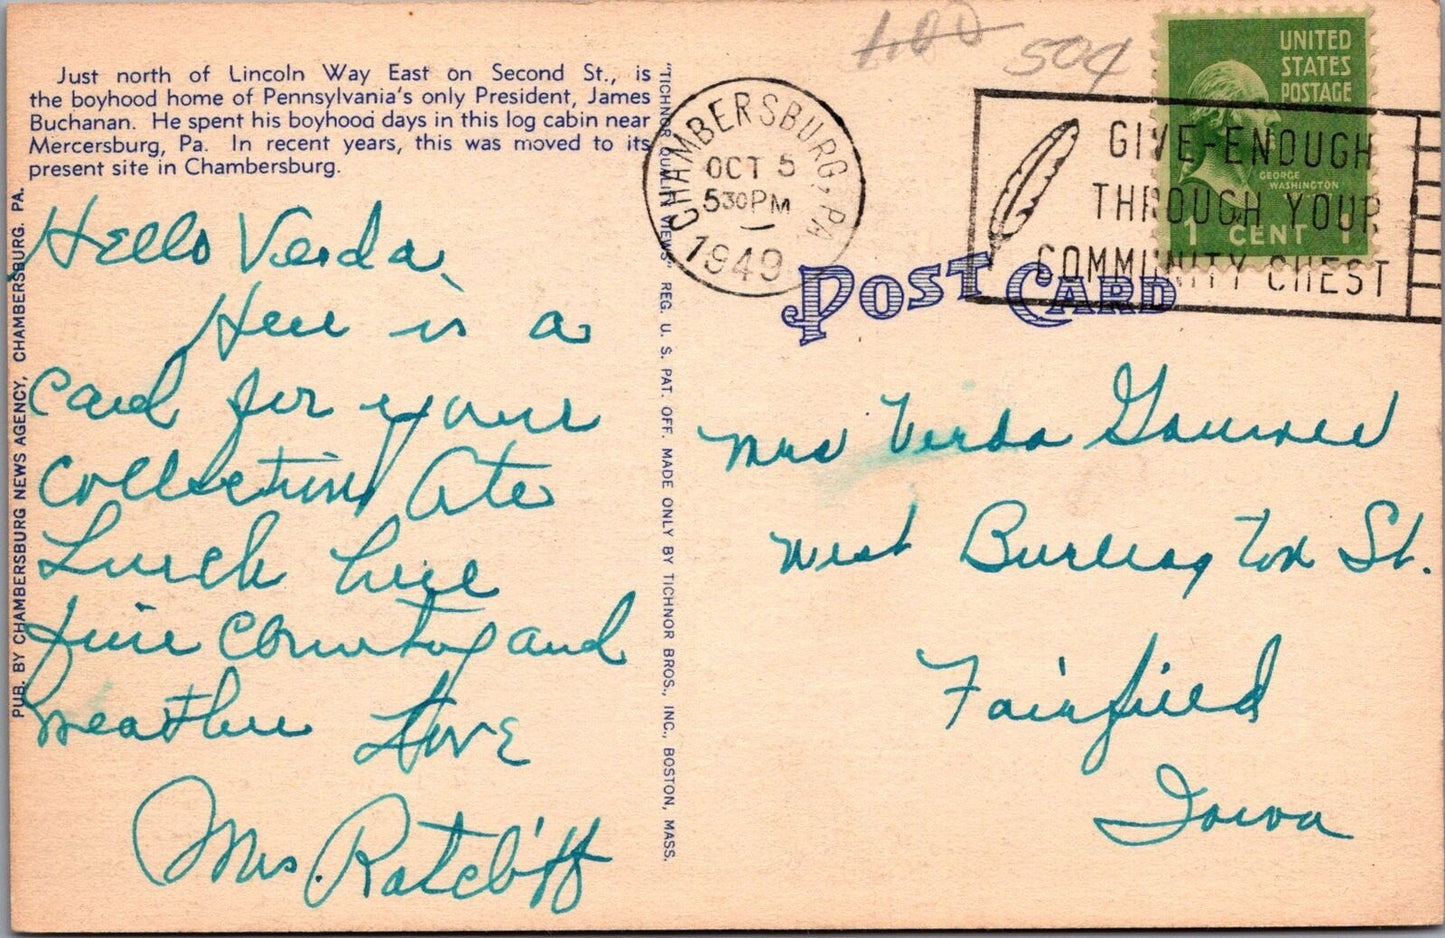 Just north of Lincoln Way East on Second St., is
the boyhood home of Pennsylvania's only President, James
Buchanan. He spent his boyhood days in this log cabin near
Mercersburg, Pa. In recent years, this was moved to its
present site in Chambersburg.
PUB. BY CHAMBERSBURG NEWS AGENCY, CHAMBERSBURG. PA.
Hello Verda
Here is a
Card for your
Collection Ate
Lunch here
fine Country and
weather Love
Mrs. Ratcliff
"TICHNOR QUALITY VIEWS" REG. U. S. PAT. OFF. MADE ONLY BY TICHNOR BROS., INC., BOSTON, MASS.
1.00 50¢
CHAMBERSBURG, PA
OCT 5
530PM
1949
GIVE-ENOUGH
THROUGH YOUR
COMMUNITY CHEST
UNITED
STATES
POSTAGE
GEORGE
WASHINGTON
1 CENT 1
POST CARD
Mrs Verda
West Burlington St.
Fairfield
Iowa